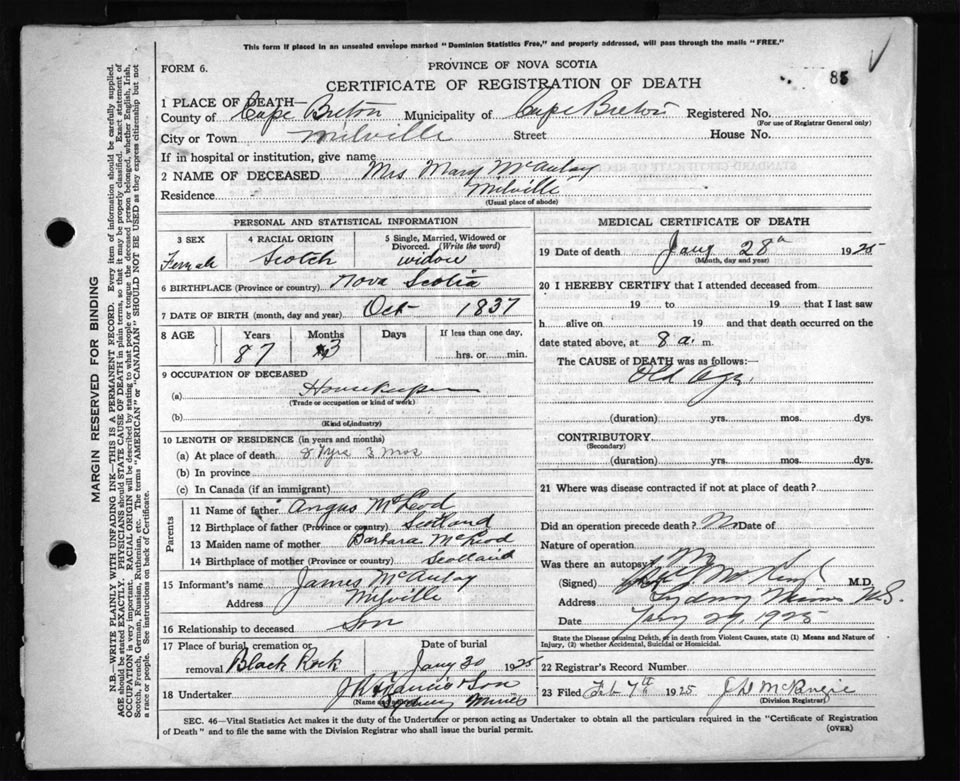 This form if placed in an unsealed envelope marked "Dominion Statistics Free," and properly addressed, will pass through the mails "FREE."
FORM 6.
PROVINCE OF NOVA SCOTIA
85
CERTIFICATE OF REGISTRATION OF DEATH
1 PLACE OF DEATH—
County of Cape Breton Municipality of Cape Breton Registered No.
(For use of Registrar General only)
City or Town Milville Street House No.
If in hospital or institution, give name
2 NAME OF DECEASED Mrs. Mary McAulay
Residence Milville
(Usual place of abode)
PERSONAL AND STATISTICAL INFORMATION
3 SEX 4 RACIAL ORIGIN 5 Single, Married, Widowed or Divorced. (Write the word)
Female Scotch widow
6 BIRTHPLACE (Province or country) Nova Scotia
7 DATE OF BIRTH (month, day and year) Oct 1837
8 AGE Years Months Days If less than one day,
87 3 hrs. or min.
9 OCCUPATION OF DECEASED
(a) Housekeeper
(Trade or occupation or kind of work)
(b)
(Kind of industry)
10 LENGTH OF RESIDENCE (in years and months)
(a) At place of death 87 yrs 3 mos
(b) In province
(c) In Canada (if an immigrant)
Parents
11 Name of father Angus McLeod
12 Birthplace of father (Province or country) Scotland
13 Maiden name of mother Barbara McLeod
14 Birthplace of mother (Province or country) Scotland
15 Informant's name James McAulay
Address Milville
16 Relationship to deceased Son
17 Place of burial, cremation or removal Black Rock
Date of burial Jany 30 1925
18 Undertaker J R Francis & Son
(Name and address) Sydney Mines
MEDICAL CERTIFICATE OF DEATH
19 Date of death Jany 28th 1925
(Month, day and year)
20 I HEREBY CERTIFY that I attended deceased from
19 to 19 that I last saw
h alive on 19 and that death occurred on the
date stated above, at 8 a. m.
The CAUSE of DEATH was as follows:
Old Age.
(duration) yrs. mos. dys.
CONTRIBUTORY
(Secondary)
(duration) yrs. mos. dys.
21 Where was disease contracted if not at place of death?
Did an operation precede death? No Date of
Nature of operation
Was there an autopsy?
(Signed) M.D.
Address Sydney Mines N.S.
Date 29, 1925
State the Disease causing Death, or in death from Violent Causes, state (1) Means and Nature of Injury, (2) whether Accidental, Suicidal or Homicidal.
22 Registrar's Record Number
23 Filed Feb 7th 1925 McKenzie
(Division Registrar)
SEC. 46—Vital Statistics Act makes it the duty of the Undertaker or person acting as Undertaker to obtain all the particulars required in the "Certificate of Registration
of Death" and to file the same with the Division Registrar who shall issue the burial permit.
(OVER)
MARGIN RESERVED FOR BINDING
N.B.—WRITE PLAINLY WITH UNFADING INK—THIS IS A PERMANENT RECORD. Every item of information should be carefully supplied.
AGE should be stated EXACTLY. PHYSICIANS should STATE CAUSE OF DEATH in plain terms, so that it may be properly classified. Exact statement of
OCCUPATION is very important. RACIAL ORIGIN will be described by stating to what people or tongue the deceased person belonged, whether English, Irish,
Scotch, French, German, Russian, Ruthenian, etc. The terms "AMERICAN" or "CANADIAN" SHOULD NOT BE USED as they express citizenship but not
a race or people. See instructions on back of Certificate.